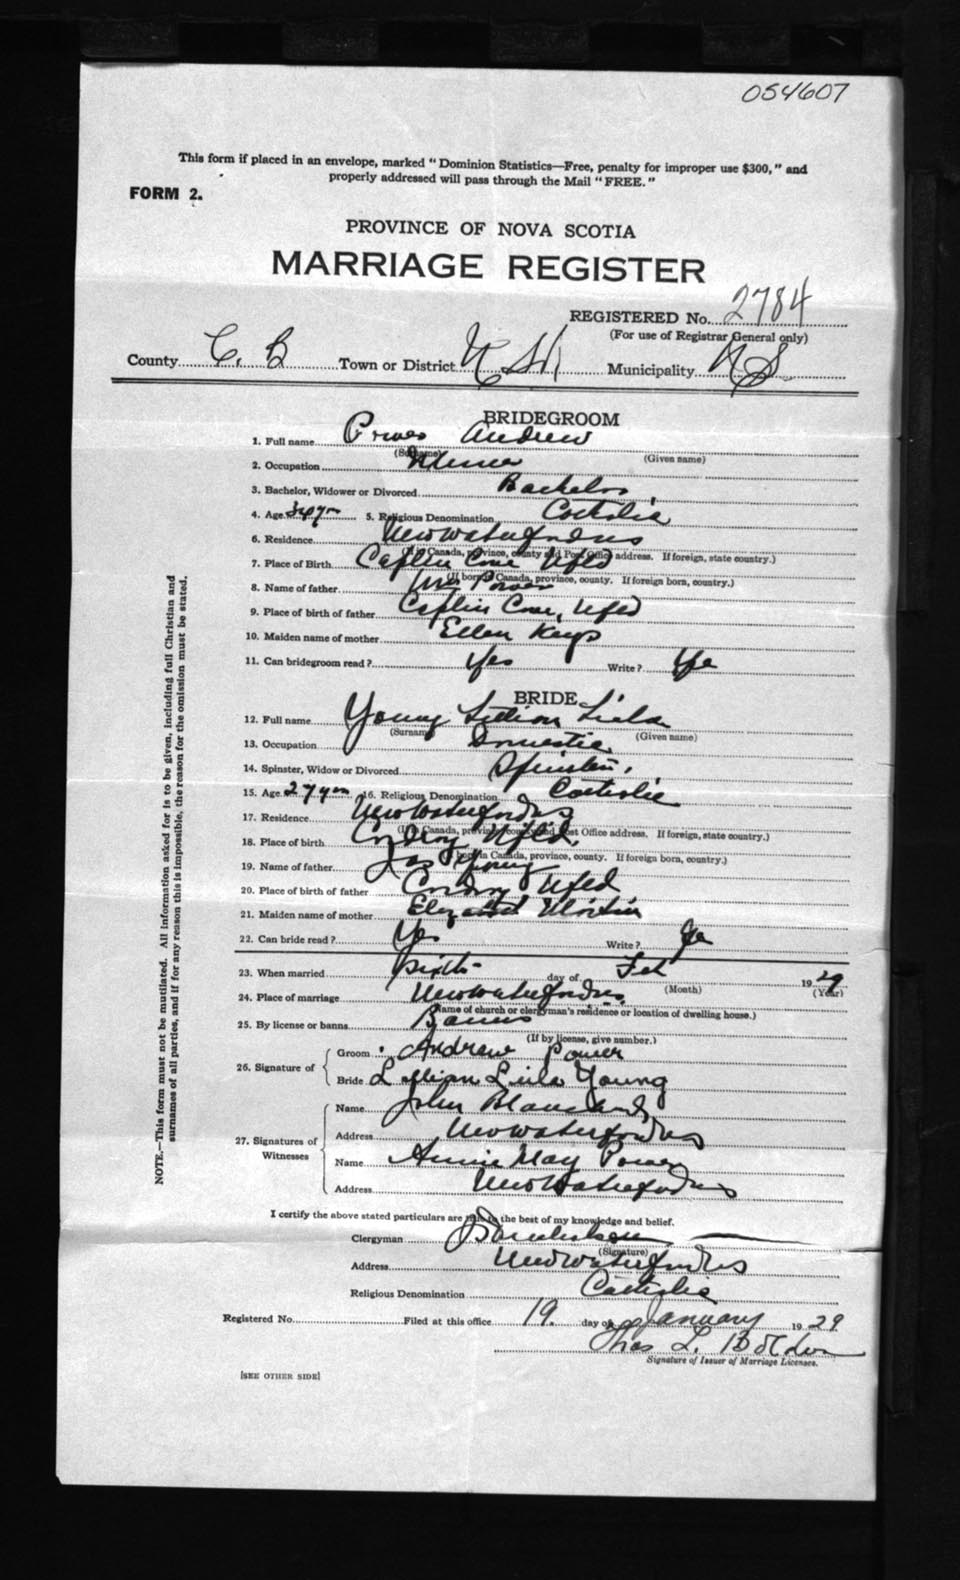 054607
This form if placed in an envelope, marked "Dominion Statistics—Free, penalty for improper use $300," and
properly addressed will pass through the Mail "FREE."
FORM 2.
PROVINCE OF NOVA SCOTIA
MARRIAGE REGISTER
REGISTERED No. 2784
(For use of Registrar General only)
County C. B Town or District Municipality N S
BRIDEGROOM
1. Full name Power Andrew
(Surname) (Given name)
2. Occupation Miner
3. Bachelor, Widower or Divorced Bachelor
4. Age 34 yrs 5. Religious Denomination Catholic
6. Residence New Waterford NS
(If in Canada, province, county and Post Office address. If foreign, state country.)
7. Place of Birth Caplin Cove Nfld
(If born in Canada, province, county. If foreign born, country.)
8. Name of father Power
9. Place of birth of father Caplin Cove, Nfld
10. Maiden name of mother Ellen Keys
11. Can bridegroom read? Yes Write? Ye
BRIDE
12. Full name Young Lillian Liela
(Surname) (Given name)
13. Occupation Domestic
14. Spinster, Widow or Divorced Spinster
15. Age 27 yrs 16. Religious Denomination Catholic
17. Residence New Waterford NS
(If in Canada, province, county and Post Office address. If foreign, state country.)
18. Place of birth Codroy Nfld.
(If born in Canada, province, county. If foreign born, country.)
19. Name of father Jas Young
20. Place of birth of father Codroy Nfld
21. Maiden name of mother Elizabeth
22. Can bride read? Ye Write? Ye
23. When married Sixth day of Feb 1929
(Month) (Year)
24. Place of marriage New Waterford NS
(Name of church or clergyman's residence or location of dwelling house.)
25. By license or banns Banns
(If by license, give number.)
26. Signature of Groom Andrew Power
Bride Lillian Leila Young
27. Signatures of Witnesses Name John Blanchard
Address New Waterford NS
Name Annie May Power
Address New Waterford NS
I certify the above stated particulars are true to the best of my knowledge and belief.
Clergyman
(Signature)
Address New Waterford NS
Religious Denomination Catholic
Registered No. Filed at this office 19. day of January 1929
Thos L.
Signature of Issuer of Marriage Licenses.
[SEE OTHER SIDE]
NOTE.—This form must not be mutilated. All information asked for is to be given, including full Christian and
surnames of all parties, and if for any reason this is impossible, the reason for the omission must be stated.